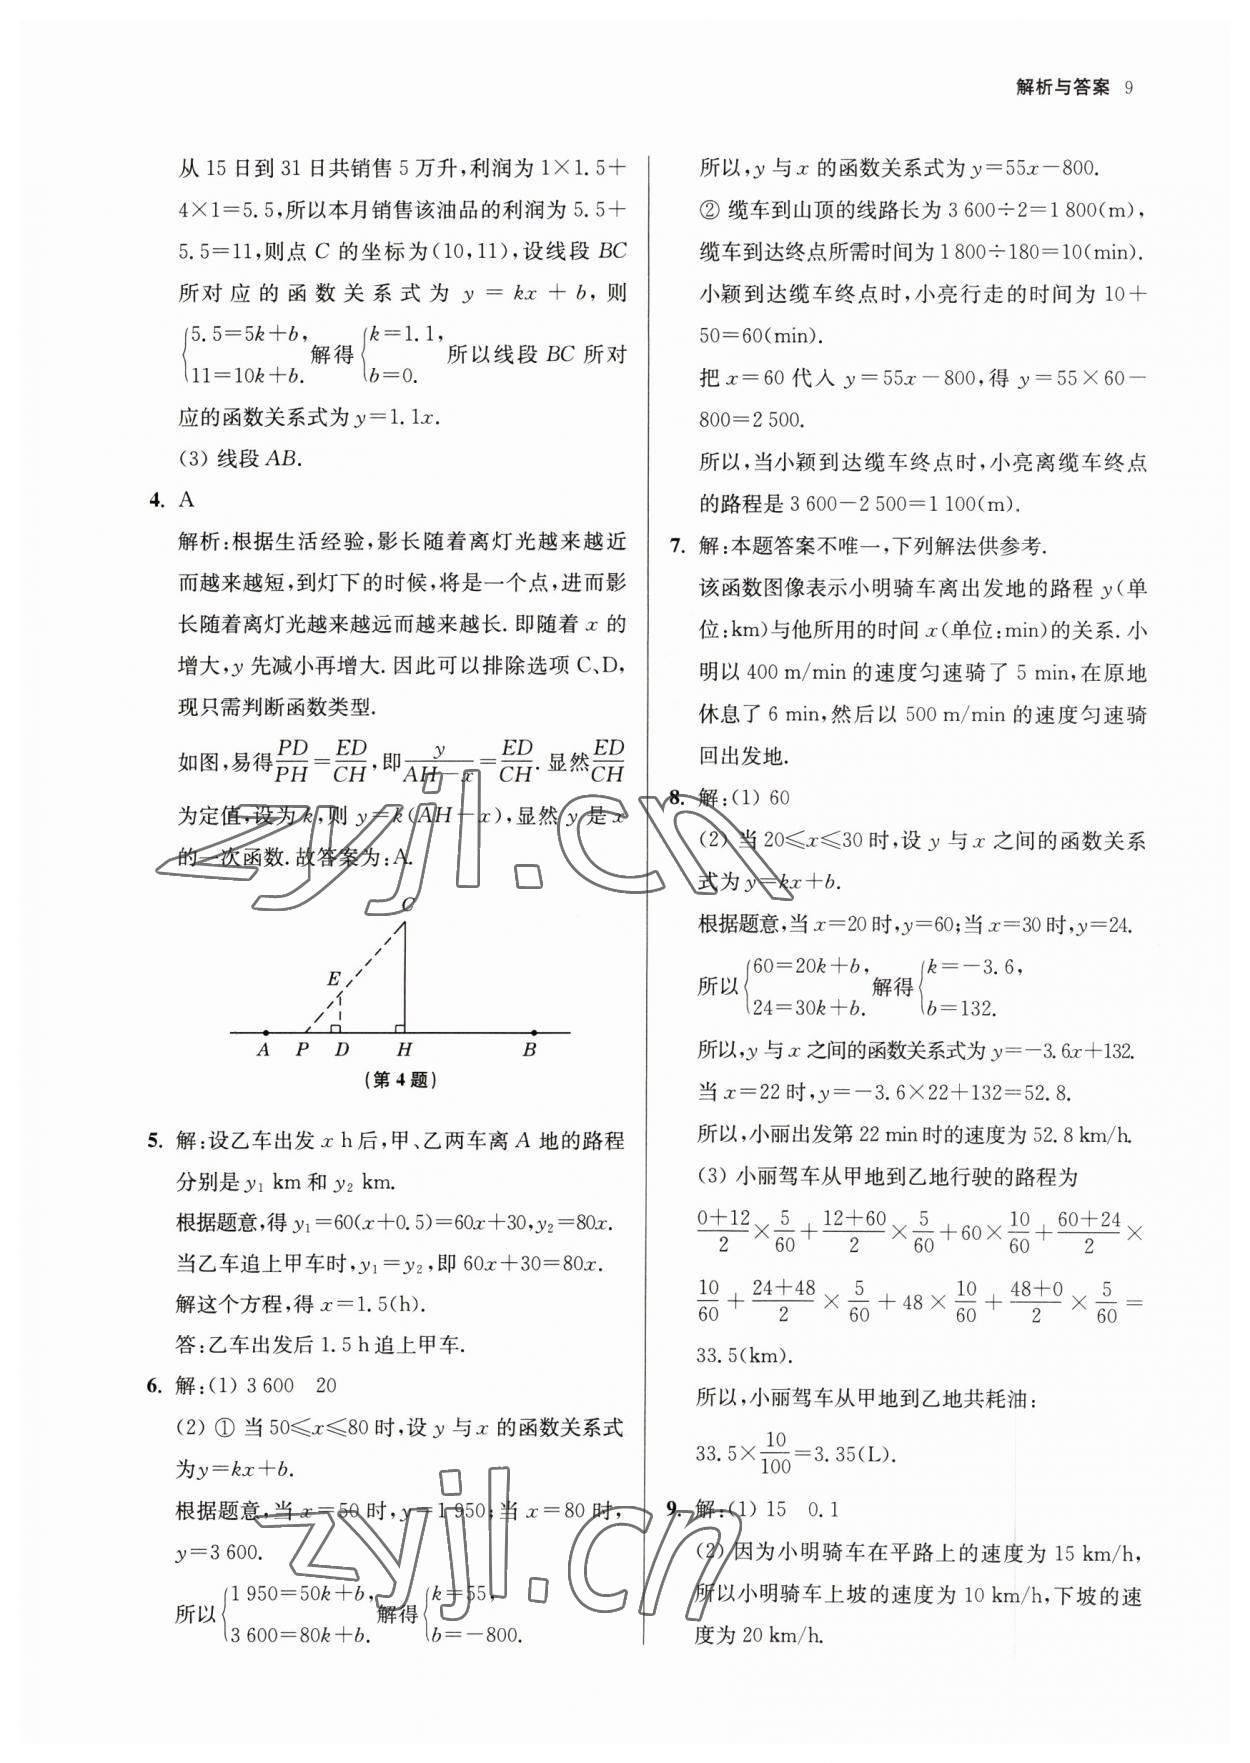 解析与答案 9
从 15 日到 31 日共销售 5 万升,利润为 1×1.5+
4×1=5.5,所以本月销售该油品的利润为 5.5+
5.5=11,则点 C 的坐标为(10,11),设线段 BC
所对应的函数关系式为 y=kx+b,则
{5.5=5k+b, 11=10k+b. 解得 {k=1.1, b=0. 所以线段 BC 所对
应的函数关系式为 y=1.1x.
(3) 线段 AB.
4. A
解析:根据生活经验,影长随着离灯光越来越近
而越来越短,到灯下的时候,将是一个点,进而影
长随着离灯光越来越远而越来越长.即随着 x 的
增大,y 先减小再增大.因此可以排除选项 C、D,
现只需判断函数类型.
如图,易得 PD/PH=ED/CH,即 y/(AH-x)=ED/CH.显然 ED/CH
为定值,设为 k,则 y=k(AH-x),显然 y 是 x
的一次函数.故答案为:A.
C
E
A P D H B
(第 4 题)
5. 解:设乙车出发 x h 后,甲、乙两车离 A 地的路程
分别是 y₁ km 和 y₂ km.
根据题意,得 y₁=60(x+0.5)=60x+30,y₂=80x.
当乙车追上甲车时,y₁=y₂,即 60x+30=80x.
解这个方程,得 x=1.5(h).
答:乙车出发后 1.5 h 追上甲车.
6. 解:(1) 3 600 20
(2) ① 当 50≤x≤80 时,设 y 与 x 的函数关系式
为 y=kx+b.
根据题意,当 x=50 时,y=1 950;当 x=80 时,
y=3 600.
所以 {1 950=50k+b, 3 600=80k+b. 解得 {k=55, b=-800.
所以,y 与 x 的函数关系式为 y=55x-800.
② 缆车到山顶的线路长为 3 600÷2=1 800(m),
缆车到达终点所需时间为 1 800÷180=10(min).
小颖到达缆车终点时,小亮行走的时间为 10+
50=60(min).
把 x=60 代入 y=55x-800,得 y=55×60-
800=2 500.
所以,当小颖到达缆车终点时,小亮离缆车终点
的路程是 3 600-2 500=1 100(m).
7. 解:本题答案不唯一,下列解法供参考.
该函数图像表示小明骑车离出发地的路程 y(单
位:km)与他所用的时间 x(单位:min)的关系.小
明以 400 m/min 的速度匀速骑了 5 min,在原地
休息了 6 min,然后以 500 m/min 的速度匀速骑
回出发地.
8. 解:(1) 60
(2) 当 20≤x≤30 时,设 y 与 x 之间的函数关系
式为 y=kx+b.
根据题意,当 x=20 时,y=60;当 x=30 时,y=24.
所以 {60=20k+b, 24=30k+b. 解得 {k=-3.6, b=132.
所以,y 与 x 之间的函数关系式为 y=-3.6x+132.
当 x=22 时,y=-3.6×22+132=52.8.
所以,小丽出发第 22 min 时的速度为 52.8 km/h.
(3) 小丽驾车从甲地到乙地行驶的路程为
(0+12)/2×5/60+(12+60)/2×5/60+60×10/60+(60+24)/2×
10/60+(24+48)/2×5/60+48×10/60+(48+0)/2×5/60=
33.5(km).
所以,小丽驾车从甲地到乙地共耗油:
33.5×10/100=3.35(L).
9. 解:(1) 15 0.1
(2) 因为小明骑车在平路上的速度为 15 km/h,
所以小明骑车上坡的速度为 10 km/h,下坡的速
度为 20 km/h.
zyjl.cn
zyjl.cn